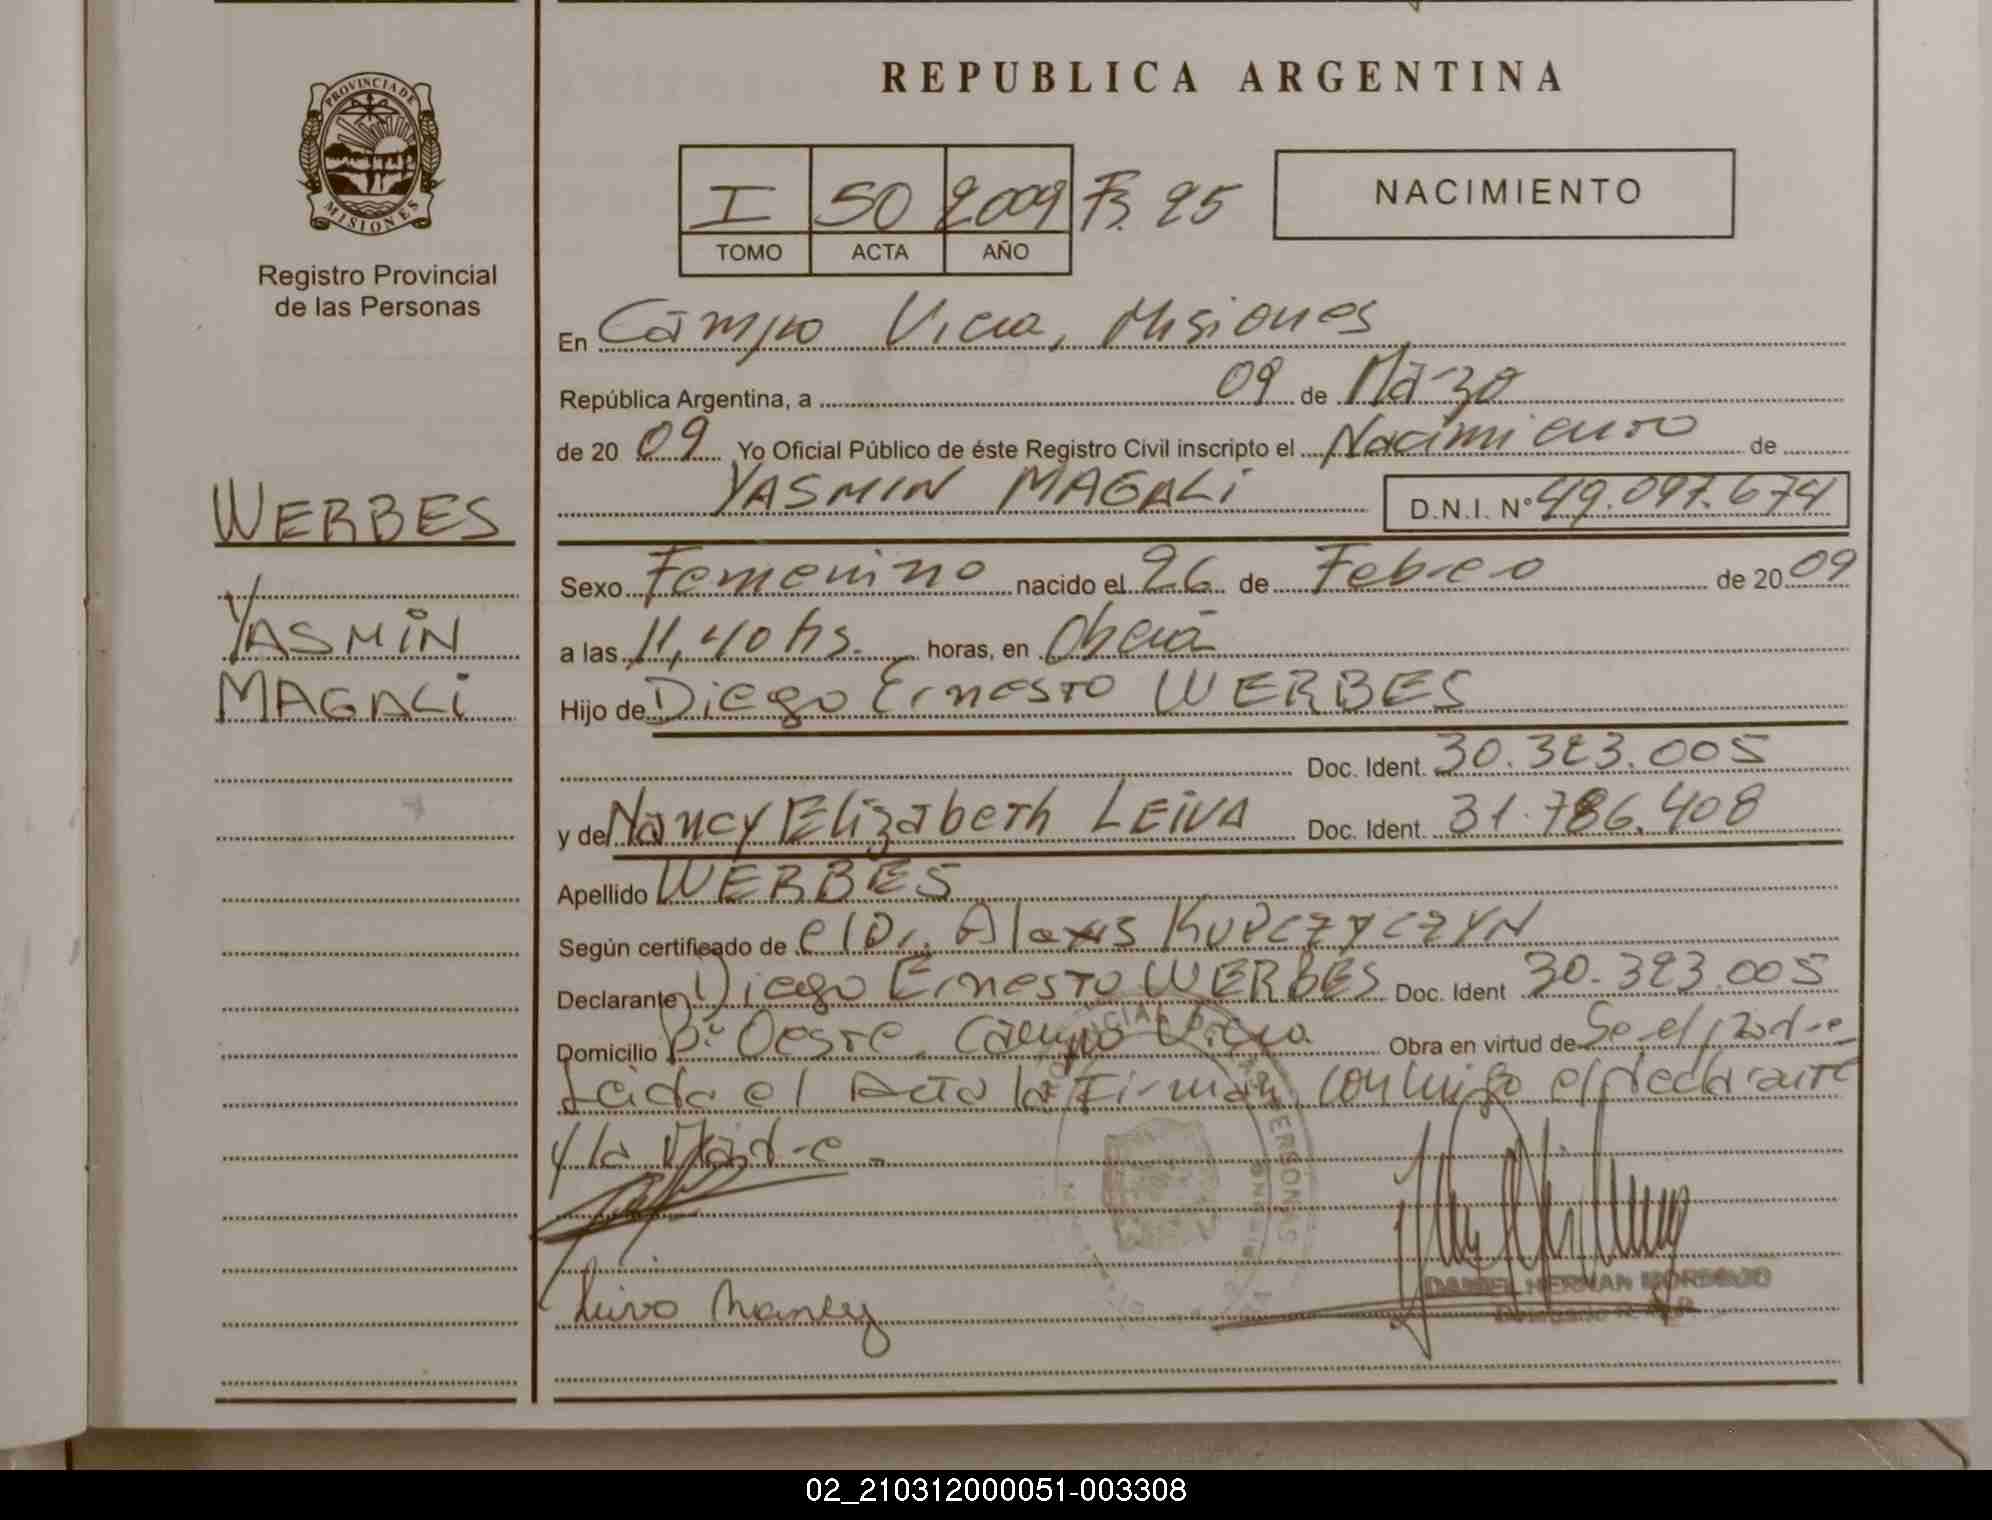 REPUBLICA ARGENTINA
PROVINCIA DE
MISIONES
Registro Provincial
de las Personas
I 50 2009 Fs. 25
TOMO ACTA AÑO
NACIMIENTO
En Campo Viera, Misiones
República Argentina, a 09 de Marzo
de 20 09 Yo Oficial Público de éste Registro Civil inscripto el Nacimiento de
YASMIN MAGALI D.N.I. Nº 49.097.674
WERBES
YASMIN
MAGALI
Sexo Femenino nacido el 26 de Febrero de 20 09
a las 11,40 hs. horas, en Oberá
Hijo de Diego Ernesto WERBES
Doc. Ident. 30.323.005
y de Nancy Elizabeth LEIVA Doc. Ident. 31.786.408
Apellido WERBES
Según certificado de el Dr. Alexis KUPCZYCZYN
Declarante Diego Ernesto WERBES Doc. Ident 30.323.005
Domicilio Bº Oeste, Campo Viera Obra en virtud de Se el padre
Leida el Acta la Firman conmigo el declarante
y la Madre.-
Nancy
DANIEL HERNAN
02_210312000051-003308